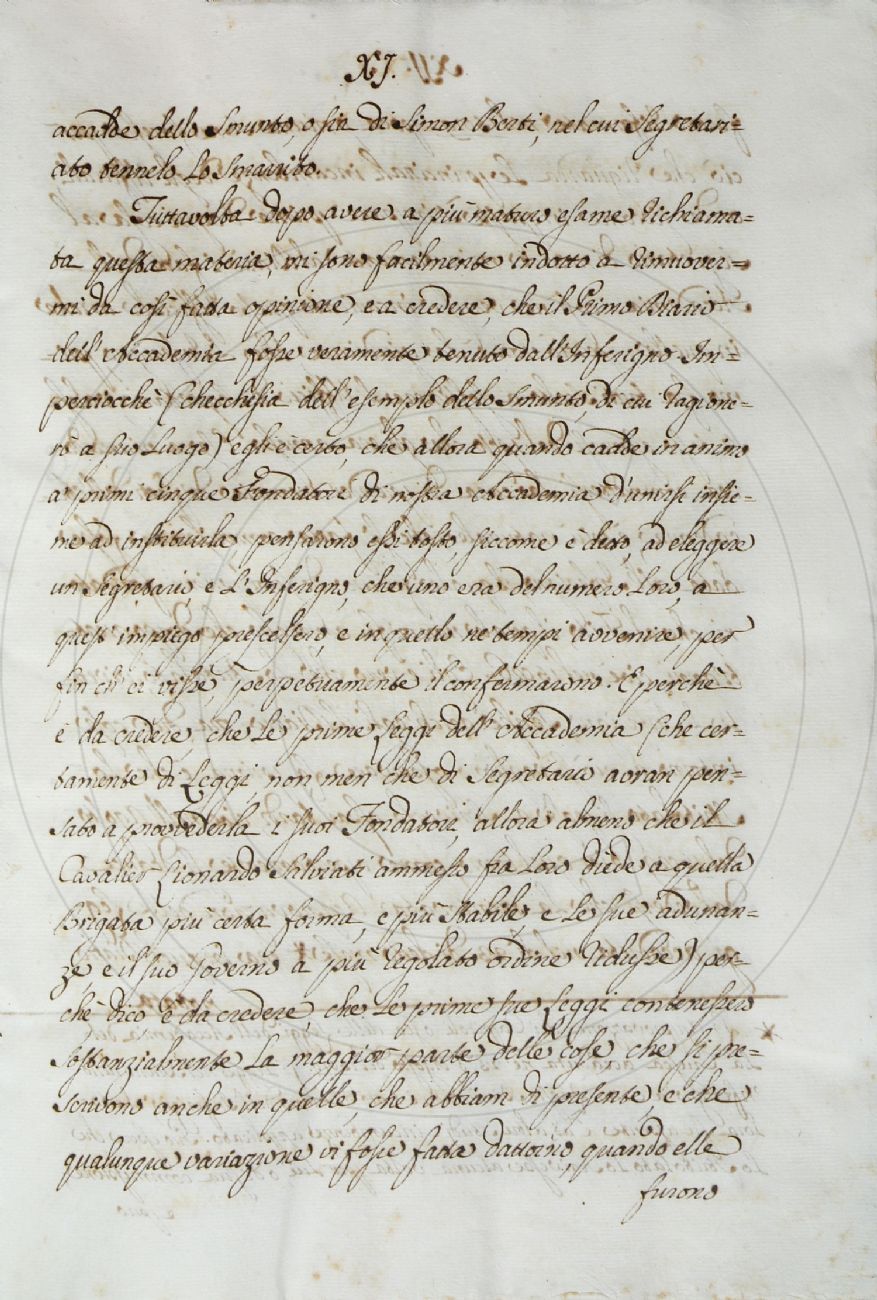 XJ.
accadde dello Smunto, o sia di Simon Berti, nel cui Segretari=
ato tennelo Lo Smarrito.
Tuttavolta dopo avere a più maturo esame richiama=
ta questa materia, mi sono facilmente indotto a rimuover=
mi da così fatta opinione, e a credere, che il Primo Diario
dell'Accademia fosse veramente tenuto dall'Inferigno Im=
perciocchè (checchesia dell'esemplo dello Smunto, di cui ragione=
rò a suo Luogo) egli è certo, che allora quando cadde in animo
a' primi cinque Fondatori di nostra Accademia d'unirsi insie=
me ad instituirla pensarono essi tosto, siccome è detto, ad eleggere
un Segretario, e L'Inferigno, che uno era del numero Loro, a
quest'impiego prescelsero, e in quello ne' tempi avvenire, per
fin ch'ei visse, perpetuamente il confermarono. E perchè
è da credere, che Le prime Leggi dell'Accademia (che cer=
tamente di Leggi, non men che di Segretario avran pen=
sato a provvederla i suoi Fondatori, allora almeno che il
Cavalier Lionardo Salviati ammesso fra Loro diede a quella
Brigata più certa forma, e più stabile, e Le sue adunan=
ze, e il suo Governo a più regolato ordine ridusse) per=
chè, dico, è da credere, che Le prime sue Leggi contenessero
sostanzialmente La maggior parte delle cose, che si pre=
scrivono anche in quelle, che abbiam di presente, e che
qualunque variazione vi fosse fatta dattorno, quando elle
furono